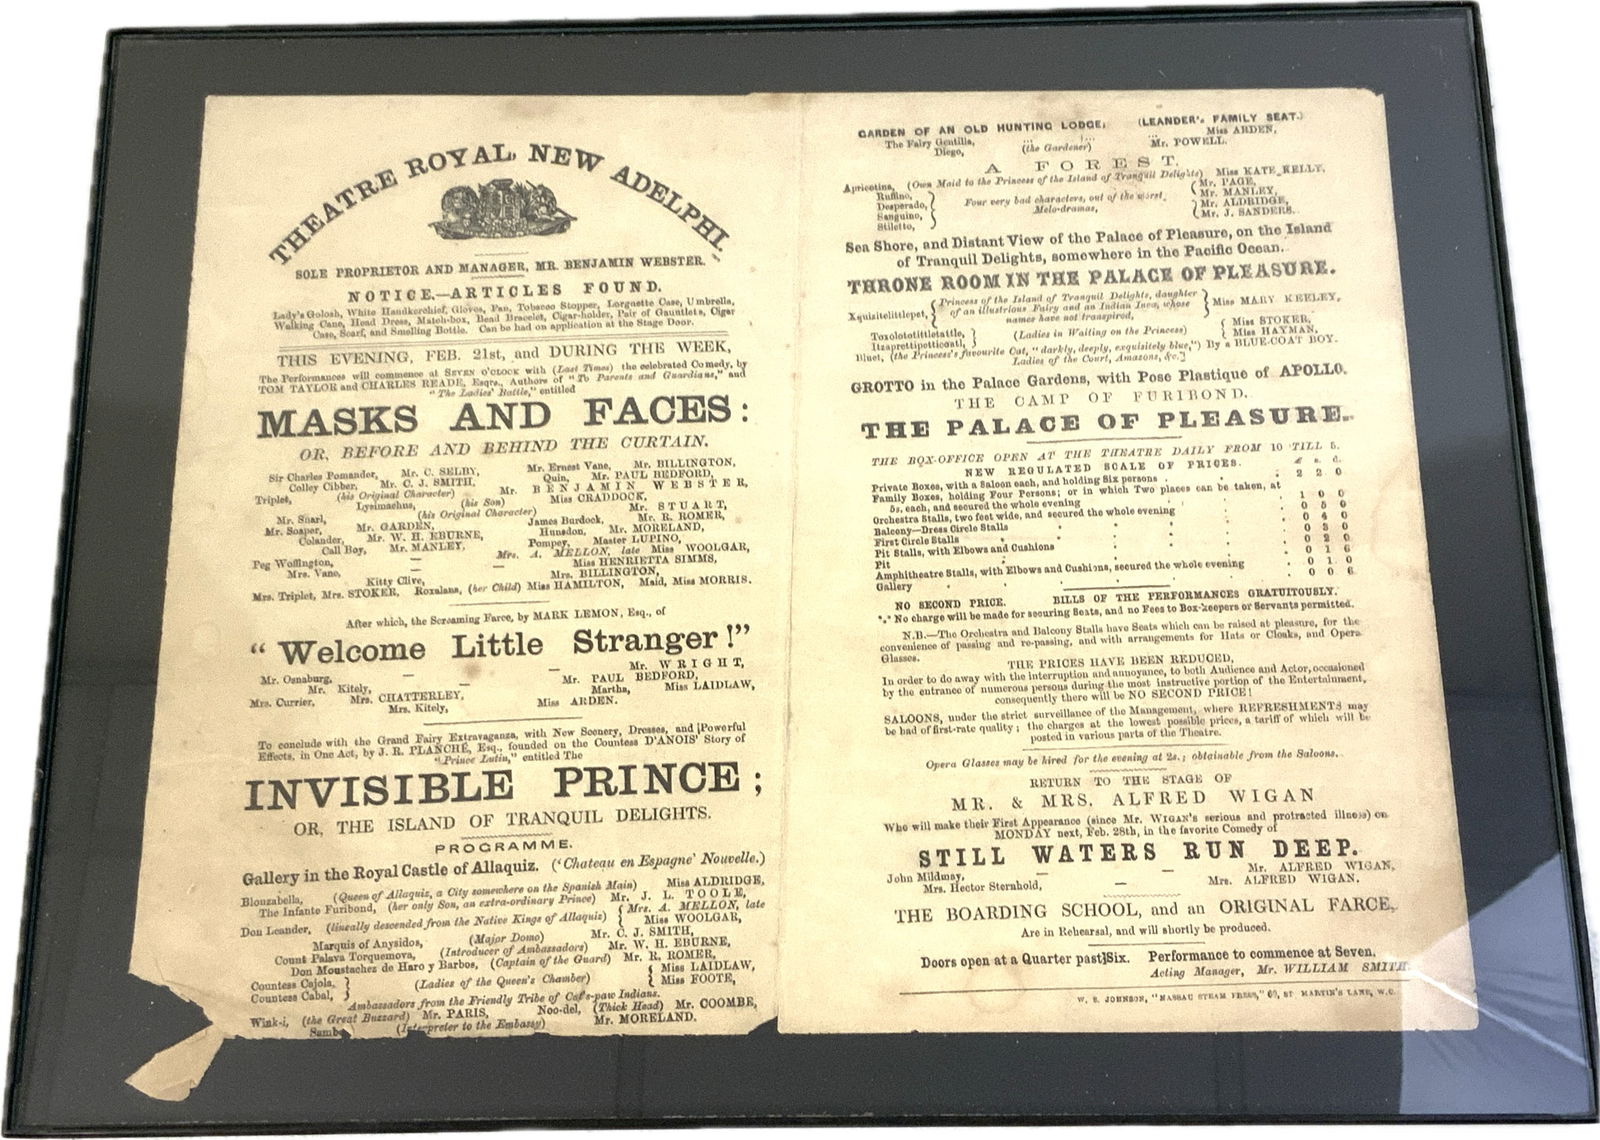 THEATRE ROYAL, NEW ADELPHI.
SOLE PROPRIETOR AND MANAGER, MR. BENJAMIN WEBSTER.
NOTICE.—ARTICLES FOUND.
Lady's Golosh, White Handkerchief, Gloves, Fan, Tobacco Stopper, Lorgnette Case, Umbrella,
Walking Cane, Head Dress, Match-box, Bead Bracelet, Cigar-holder, Pair of Gauntlets, Cigar
Case, Scarf, and Smelling Bottle. Can be had on application at the Stage Door.
THIS EVENING, FEB. 21st, and DURING THE WEEK,
The Performances will commence at SEVEN O'CLOCK with (Last Times) the celebrated Comedy, by
TOM TAYLOR and CHARLES READE, Esqrs., Authors of "To Parents and Guardians," and
"The Ladies' Battle," entitled
MASKS AND FACES:
OR, BEFORE AND BEHIND THE CURTAIN.
Sir Charles Pomander, Mr. C. SELBY, Mr. Ernest Vane, Mr. BILLINGTON,
Colley Cibber, Mr. C. J. SMITH, Quin, Mr. PAUL BEDFORD,
Triplet, (his Original Character) Mr. BENJAMIN WEBSTER,
Lysimachus, (his Son) Miss CRADDOCK,
Mr. Snarl, (his Original Character) Mr. STUART,
Mr. Soaper, Mr. GARDEN, James Burdock, Mr. R. ROMER,
Colander, Mr. W. H. EBURNE, Hunsdon, Mr. MORELAND,
Call Boy, Mr. MANLEY, Pompey, Master LUPINO,
Peg Woffington, — — Mrs. A. MELLON, late Miss WOOLGAR,
Mrs. Vane, — — Miss HENRIETTA SIMMS,
Kitty Clive, Mrs. BILLINGTON,
Mrs. Triplet, Mrs. STOKER, Roxalana, (her Child) Miss HAMILTON, Maid, Miss MORRIS.
After which, the Screaming Farce, by MARK LEMON, Esq., of
"Welcome Little Stranger!"
Mr. Osnaburg, — — Mr. WRIGHT,
Mr. Kitely, — Mr. PAUL BEDFORD,
Mrs. Currier, Mrs. CHATTERLEY, Martha, Miss LAIDLAW,
Mrs. Kitely, Miss ARDEN.
To conclude with the Grand Fairy Extravaganza, with New Scenery, Dresses, and Powerful
Effects, in One Act, by J. R. PLANCHÉ, Esq., founded on the Countess D'ANOIS' Story of
"Prince Lutin," entitled The
INVISIBLE PRINCE;
OR, THE ISLAND OF TRANQUIL DELIGHTS.
PROGRAMME.
Gallery in the Royal Castle of Allaquiz. ('Chateau en Espagne' Nouvelle.)
Blouzabella, (Queen of Allaquiz, a City somewhere on the Spanish Main) Miss ALDRIDGE,
The Infante Furibond, (her only Son, an extra-ordinary Prince) Mr. J. L. TOOLE,
Don Leander, (lineally descended from the Native Kings of Allaquiz) { Mrs. A. MELLON, late
Miss WOOLGAR,
Marquis of Anysidos, (Major Domo) Mr. C. J. SMITH,
Count Palava Torquemova, (Introducer of Ambassadors) Mr. W. H. EBURNE,
Don Moustachez de Haro y Barbos, (Captain of the Guard) Mr. R. ROMER,
Countess Cajola, } (Ladies of the Queen's Chamber) { Miss LAIDLAW,
Countess Cabal, } { Miss FOOTE,
Ambassadors from the Friendly Tribe of Cat's-paw Indians.
Wink-i, (the Great Buzzard) Mr. PARIS, Noo-del, (Thick Head) Mr. COOMBE,
Samb (Interpreter to the Embassy) Mr. MORELAND.
GARDEN OF AN OLD HUNTING LODGE, (LEANDER's FAMILY SEAT.)
The Fairy Gentilla, ... ... ... Miss ARDEN,
Diego, (the Gardener) Mr. POWELL.
A FOREST.
Apricotina, (Own Maid to the Princess of the Island of Tranquil Delights) Miss KATE KELLY,
Ruffino, } { Mr. PAGE,
Desperado, } Four very bad characters, out of the worst { Mr. MANLEY,
Sanguino, } Melo-dramas, { Mr. ALDRIDGE,
Stiletto, } { Mr. J. SANDERS.
Sea Shore, and Distant View of the Palace of Pleasure, on the Island
of Tranquil Delights, somewhere in the Pacific Ocean.
THRONE ROOM IN THE PALACE OF PLEASURE.
Xquisitelittlepet, { Princess of the Island of Tranquil Delights, daughter
of an illustrious Fairy and an Indian Inca, whose } Miss MARY KEELEY,
names have not transpired,
Toxolotottletattle, } (Ladies in Waiting on the Princess) { Miss STOKER,
Itzaprettipetticoatl, } { Miss HAYMAN,
Bluet, (the Princess's favourite Cat, "darkly, deeply, exquisitely blue,") By a BLUE-COAT BOY.
Ladies of the Court, Amazons, &c.]
GROTTO in the Palace Gardens, with Pose Plastique of APOLLO.
THE CAMP OF FURIBOND.
THE PALACE OF PLEASURE.
THE BOX-OFFICE OPEN AT THE THEATRE DAILY FROM 10 TILL 5.
NEW REGULATED SCALE OF PRICES. £ s. d.
Private Boxes, with a Saloon each, and holding Six persons . . 2 2 0
Family Boxes, holding Four Persons; or in which Two places can be taken, at
5s. each, and secured the whole evening . . 1 0 0
Orchestra Stalls, two feet wide, and secured the whole evening . 0 5 0
Balcony—Dress Circle Stalls . . . 0 4 0
First Circle Stalls . . . 0 3 0
Pit Stalls, with Elbows and Cushions . . . 0 2 0
Pit . . . 0 1 6
Amphitheatre Stalls, with Elbows and Cushions, secured the whole evening . 0 1 0
Gallery . . . 0 0 6
NO SECOND PRICE. BILLS OF THE PERFORMANCES GRATUITOUSLY.
*** No charge will be made for securing Seats, and no Fees to Box-keepers or Servants permitted.
N.B.—The Orchestra and Balcony Stalls have Seats which can be raised at pleasure, for the
convenience of passing and re-passing, and with arrangements for Hats or Cloaks, and Opera
Glasses.
THE PRICES HAVE BEEN REDUCED,
In order to do away with the interruption and annoyance, to both Audience and Actor, occasioned
by the entrance of numerous persons during the most instructive portion of the Entertainment,
consequently there will be NO SECOND PRICE!
SALOONS, under the strict surveillance of the Management, where REFRESHMENTS may
be had of first-rate quality; the charges at the lowest possible prices, a tariff of which will be
posted in various parts of the Theatre.
Opera Glasses may be hired for the evening at 2s.; obtainable from the Saloons.
RETURN TO THE STAGE OF
MR. & MRS. ALFRED WIGAN
Who will make their First Appearance (since Mr. WIGAN'S serious and protracted illness) on
MONDAY next, Feb. 28th, in the favorite Comedy of
STILL WATERS RUN DEEP.
John Mildmay, — — Mr. ALFRED WIGAN,
Mrs. Hector Sternhold, — Mrs. ALFRED WIGAN.
THE BOARDING SCHOOL, and an ORIGINAL FARCE,
Are in Rehearsal, and will shortly be produced.
Doors open at a Quarter past Six. Performance to commence at Seven.
Acting Manager, Mr. WILLIAM SMITH.
W. S. JOHNSON, "NASSAU STEAM PRESS," 60, ST MARTIN'S LANE, W.C.